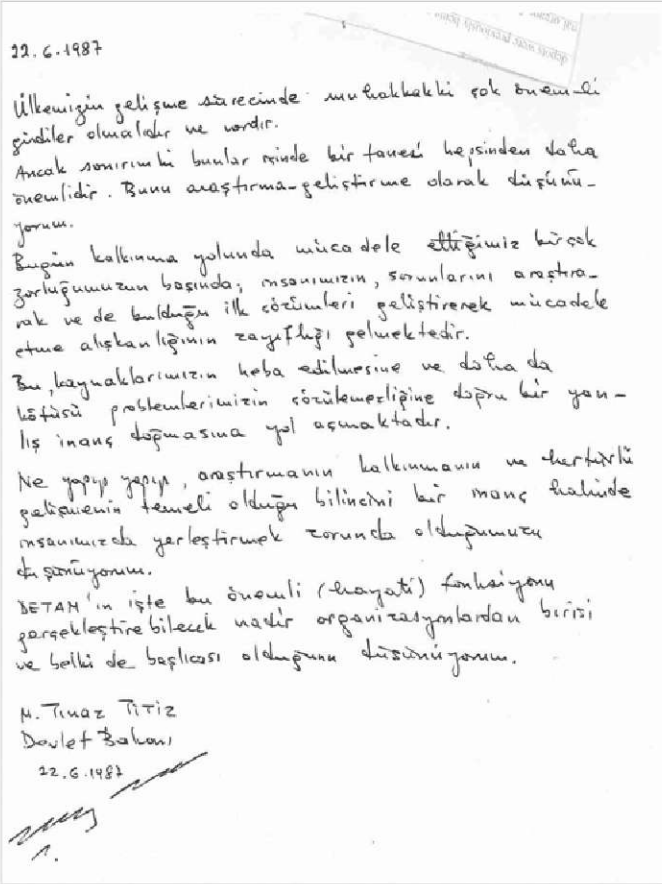 22.6.1987
Ülkemizin gelişme sürecinde muhakkakki çok önemli
girdiler olmalıdır ve vardır.
Ancak sanırımki bunlar içinde bir tanesi hepsinden daha
önemlidir. Bunu araştırma-geliştirme olarak düşünü-
yorum.
Bugün kalkınma yolunda mücadele ettiğimiz birçok
zorluğumuzun başında; insanımızın, sorunlarını araştıra-
rak ve de bulduğu ilk çözümleri geliştirerek mücadele
etme alışkanlığının zayıflığı gelmektedir.
Bu, kaynaklarımızın heba edilmesine ve daha da
kötüsü problemlerimizin çözülemezliğine doğru bir yan-
lış inanç doğmasına yol açmaktadır.
Ne yapıp yapıp, araştırmanın kalkınmanın ve hertürlü
gelişmenin temeli olduğu bilincini bir inanç halinde
insanımızda yerleştirmek zorunda olduğumuzu
düşünüyorum.
BETAM'ın işte bu önemli (hayati) fonksiyonu
gerçekleştirebilecek nadir organizasyonlardan birisi
ve belki de başlıcası olduğunu düşünüyorum.
M. Tınaz Titiz
Devlet Bakanı
22.6.1987